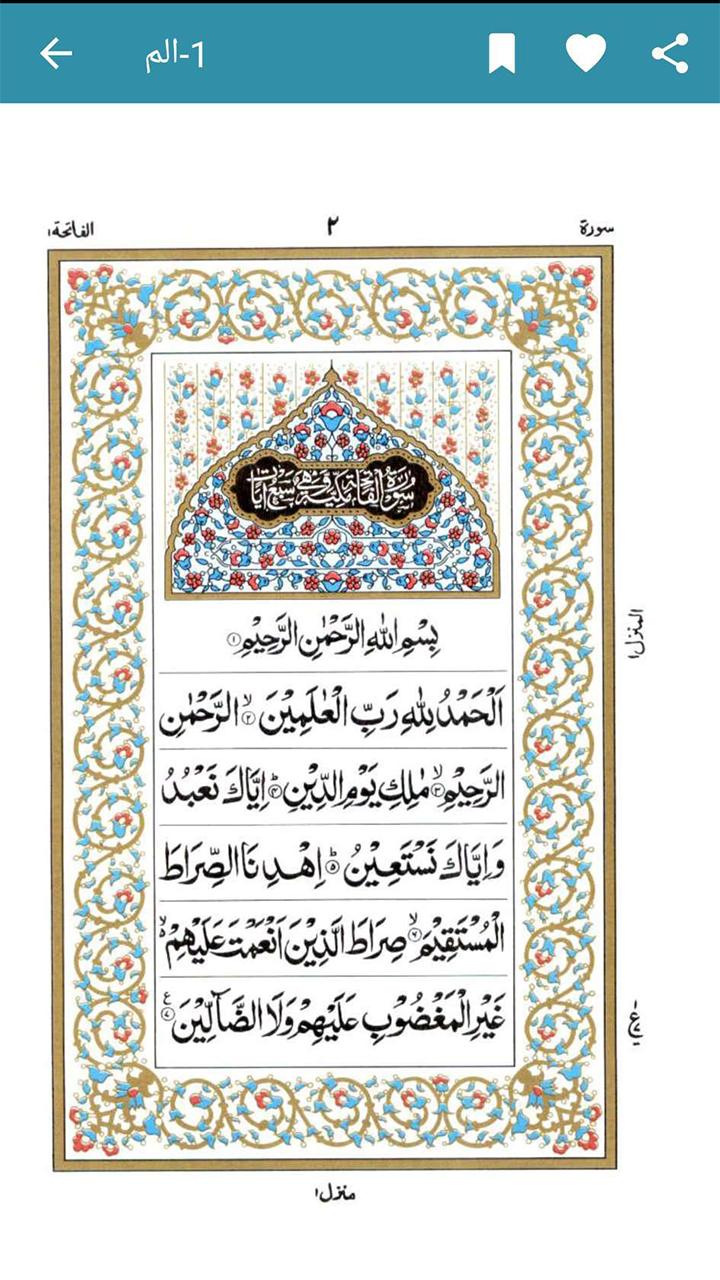 1-الم
سورة ٢ الفاتحة ١
سورة الفاتحة مكية وهي سبع ايات
بِسْمِ اللهِ الرَّحْمٰنِ الرَّحِيْمِ ١
اَلْحَمْدُ لِلّٰهِ رَبِّ الْعٰلَمِيْنَ ۙ ٢ الرَّحْمٰنِ
الرَّحِيْمِ ۙ ٣ مٰلِكِ يَوْمِ الدِّيْنِ ؕ ٤ اِيَّاكَ نَعْبُدُ
وَاِيَّاكَ نَسْتَعِيْنُ ؕ ٥ اِهْدِنَا الصِّرَاطَ
الْمُسْتَقِيْمَ ۙ ٦ صِرَاطَ الَّذِيْنَ اَنْعَمْتَ عَلَيْهِمْ ۙ
غَيْرِ الْمَغْضُوْبِ عَلَيْهِمْ وَلَا الضَّآلِّيْنَ ع ٧
المنزل ١
منزل ١